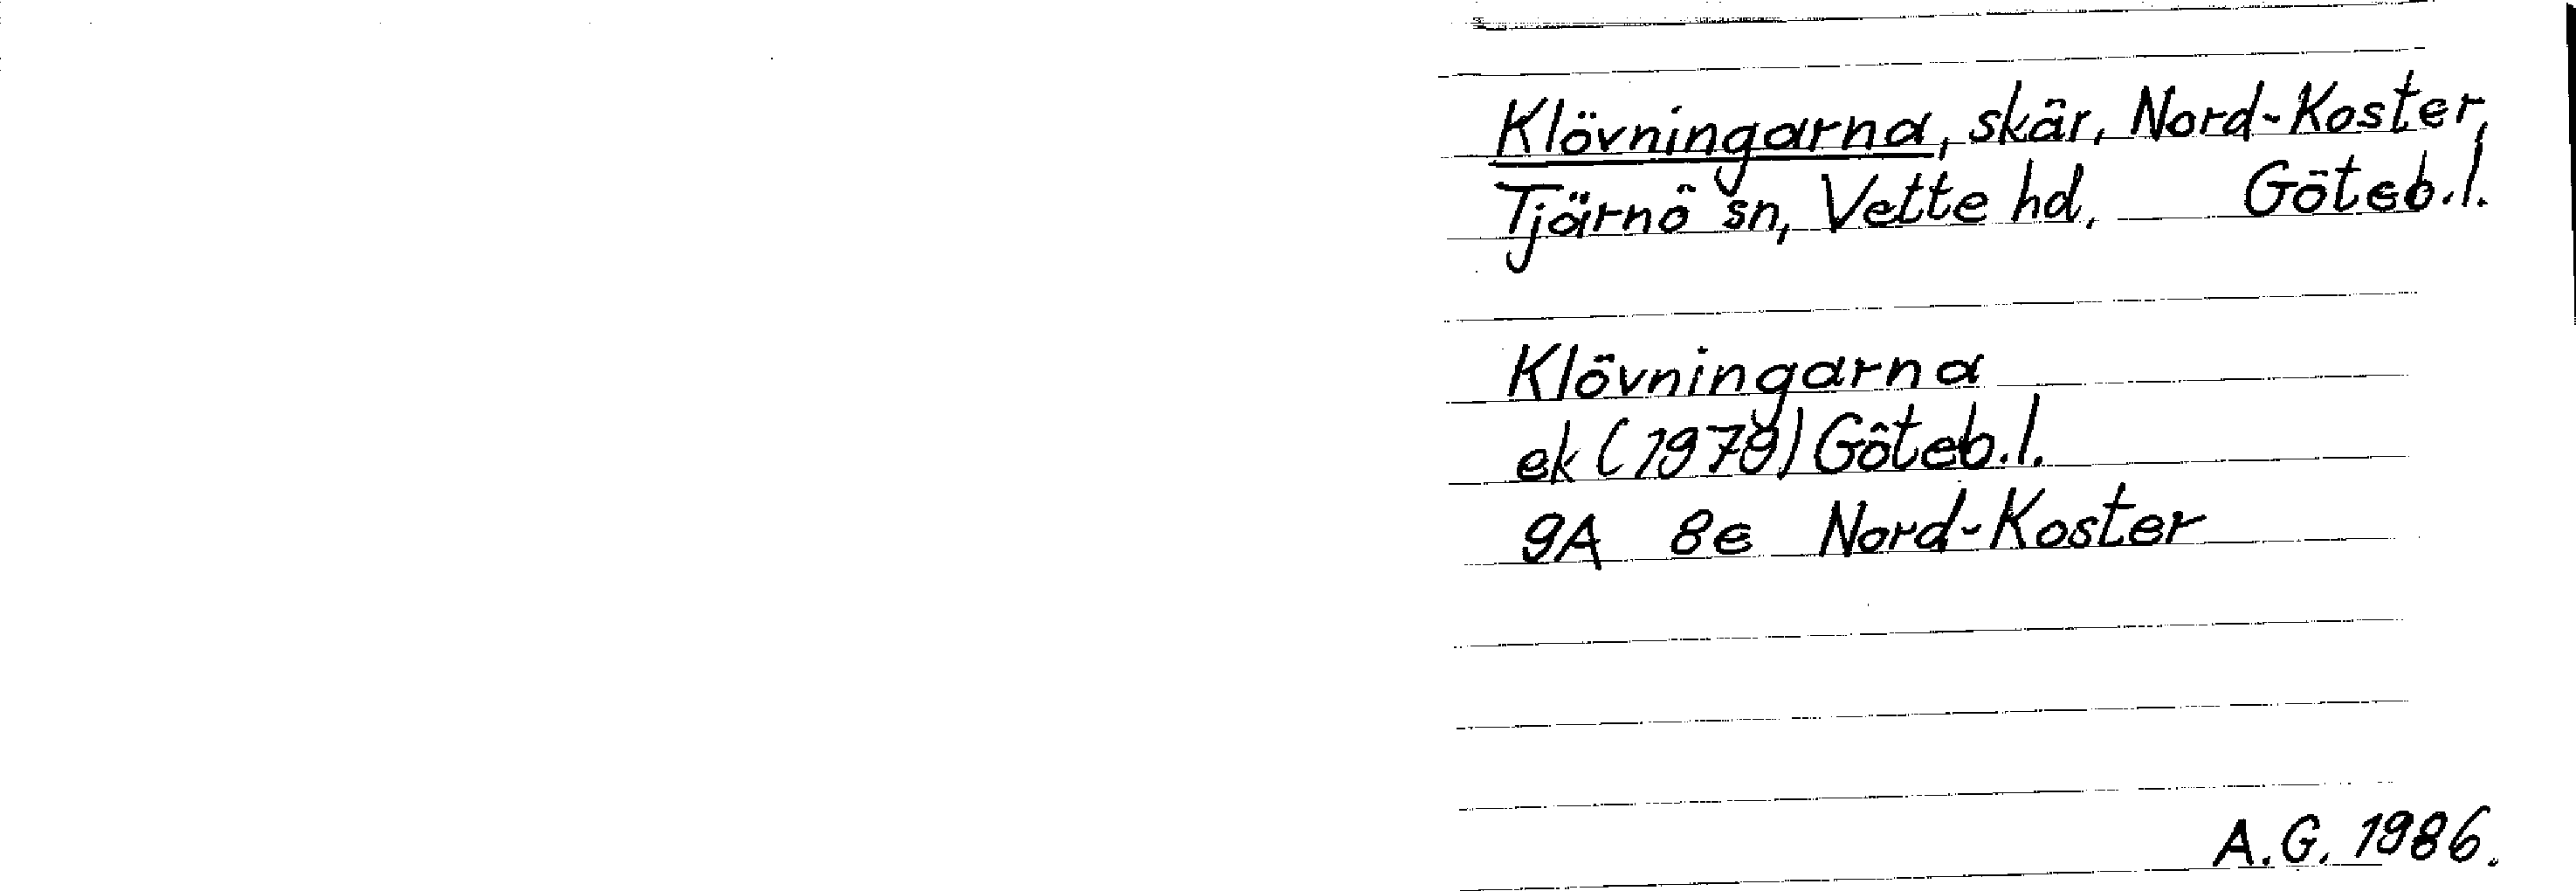 Klövningarna, skär, Nord-Koster,
Tjärnö sn, Vette hd, Göteb.l.
Klövningarna
ek (1979) Göteb.l.
9A 8e Nord-Koster
A.G. 1986.